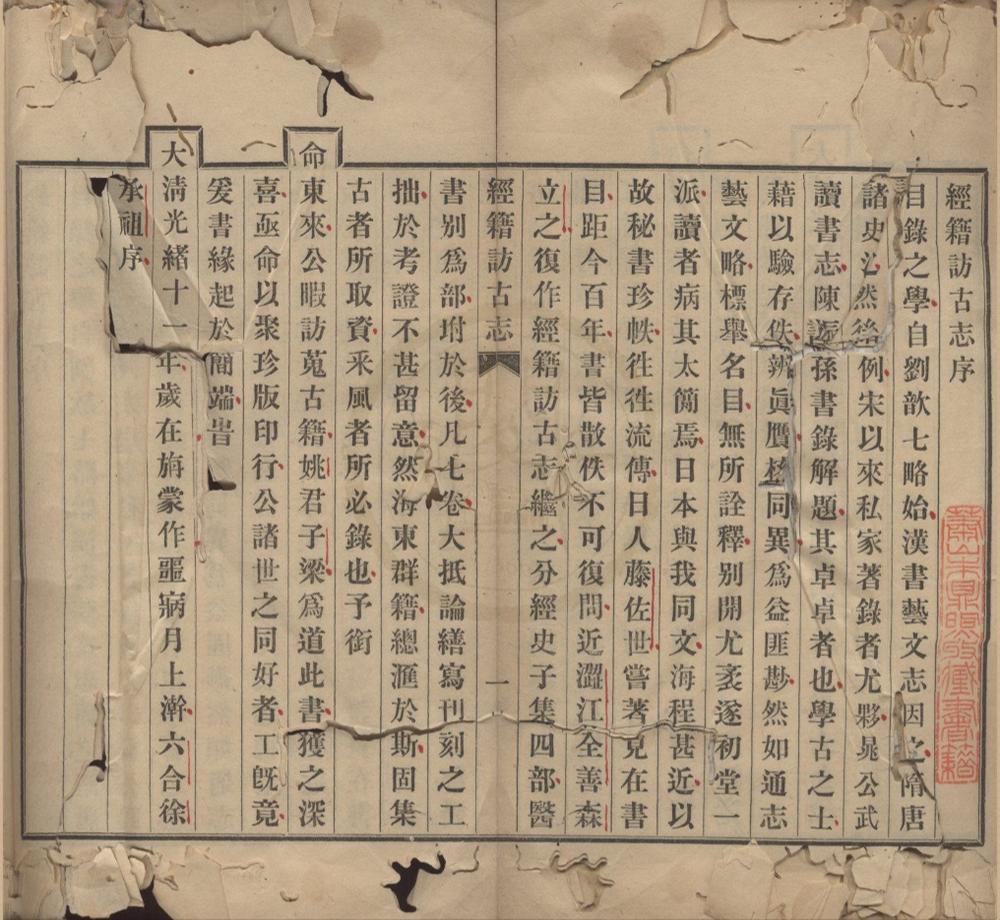 經籍訪古志序
目錄之學自劉歆七略始漢書藝文志因之隋唐
諸史沿然後例宋以來私家著錄者尤夥晁公武
讀書志陳振孫書錄解題其卓卓者也學古之士
藉以驗存佚辨眞贋核同異爲益匪尠然如通志
藝文略標舉名目無所詮釋別開尤袤遂初堂一
派讀者病其太簡焉日本與我同文海程甚近以
故秘書珍帙徃徃流傳日人藤佐世嘗著見在書
目距今百年書皆散佚不可復問近澀江全善森
立之復作經籍訪古志繼之分經史子集四部醫
經籍訪古志
一
書别爲部坿於後凡七卷大抵論繕寫刊刻之工
拙於考證不甚留意然海東群籍總滙於斯固集
古者所取資釆風者所必錄也予銜
命東來公暇訪蒐古籍姚君子梁爲道此書獲之深
喜亟命以聚珍版印行公諸世之同好者工旣竟
爰書緣起於簡端旹
大淸光緒十一年歲在旃蒙作噩病月上澣六合徐
承祖序